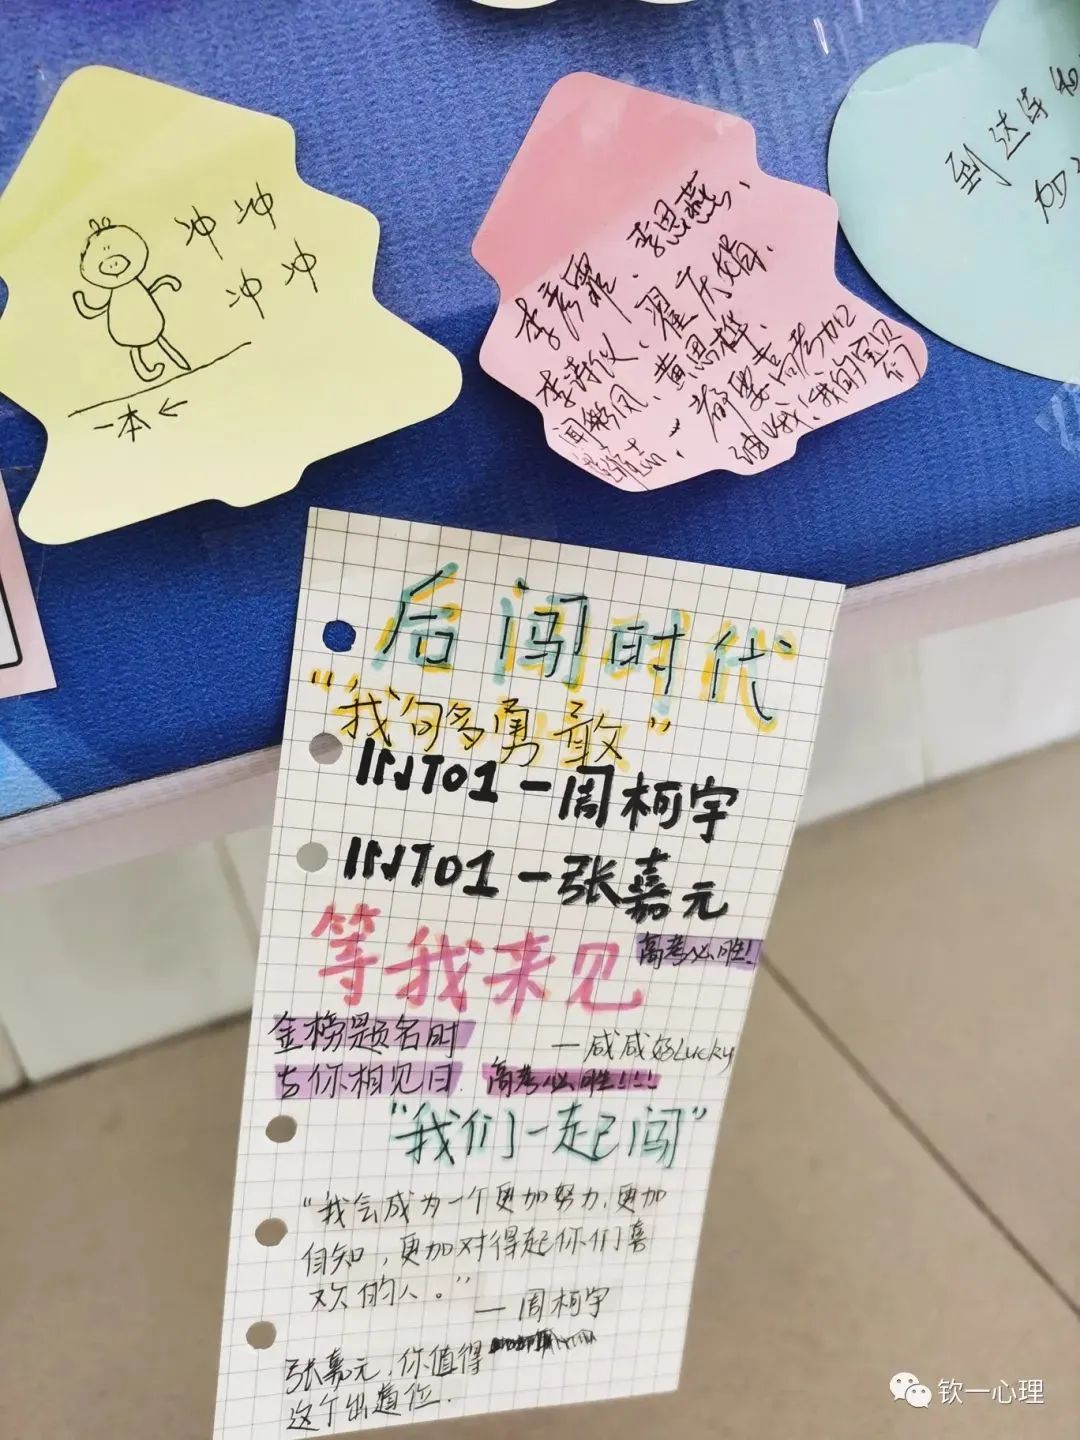 冲冲
冲冲
一本←
李彦霏、李思燕、
李诗仪、翟庆娟、
黄思桦、
都要高考加
油哦！我的宝贝
们
到达
加
后闯时代
“我匂多勇敢”
INTO1－周柯宇
INTO1－张嘉元
高考必胜！
等我来见
金榜题名时
－咸咸好Lucky
与你相见日.
高考必胜！！！！
“我们一起闯”
“我会成为一个更加努力，更加
自知，更加对得起你们喜
欢的人。”
—周柯宇
张嘉元，你值得
这个出道位.
钦一心理